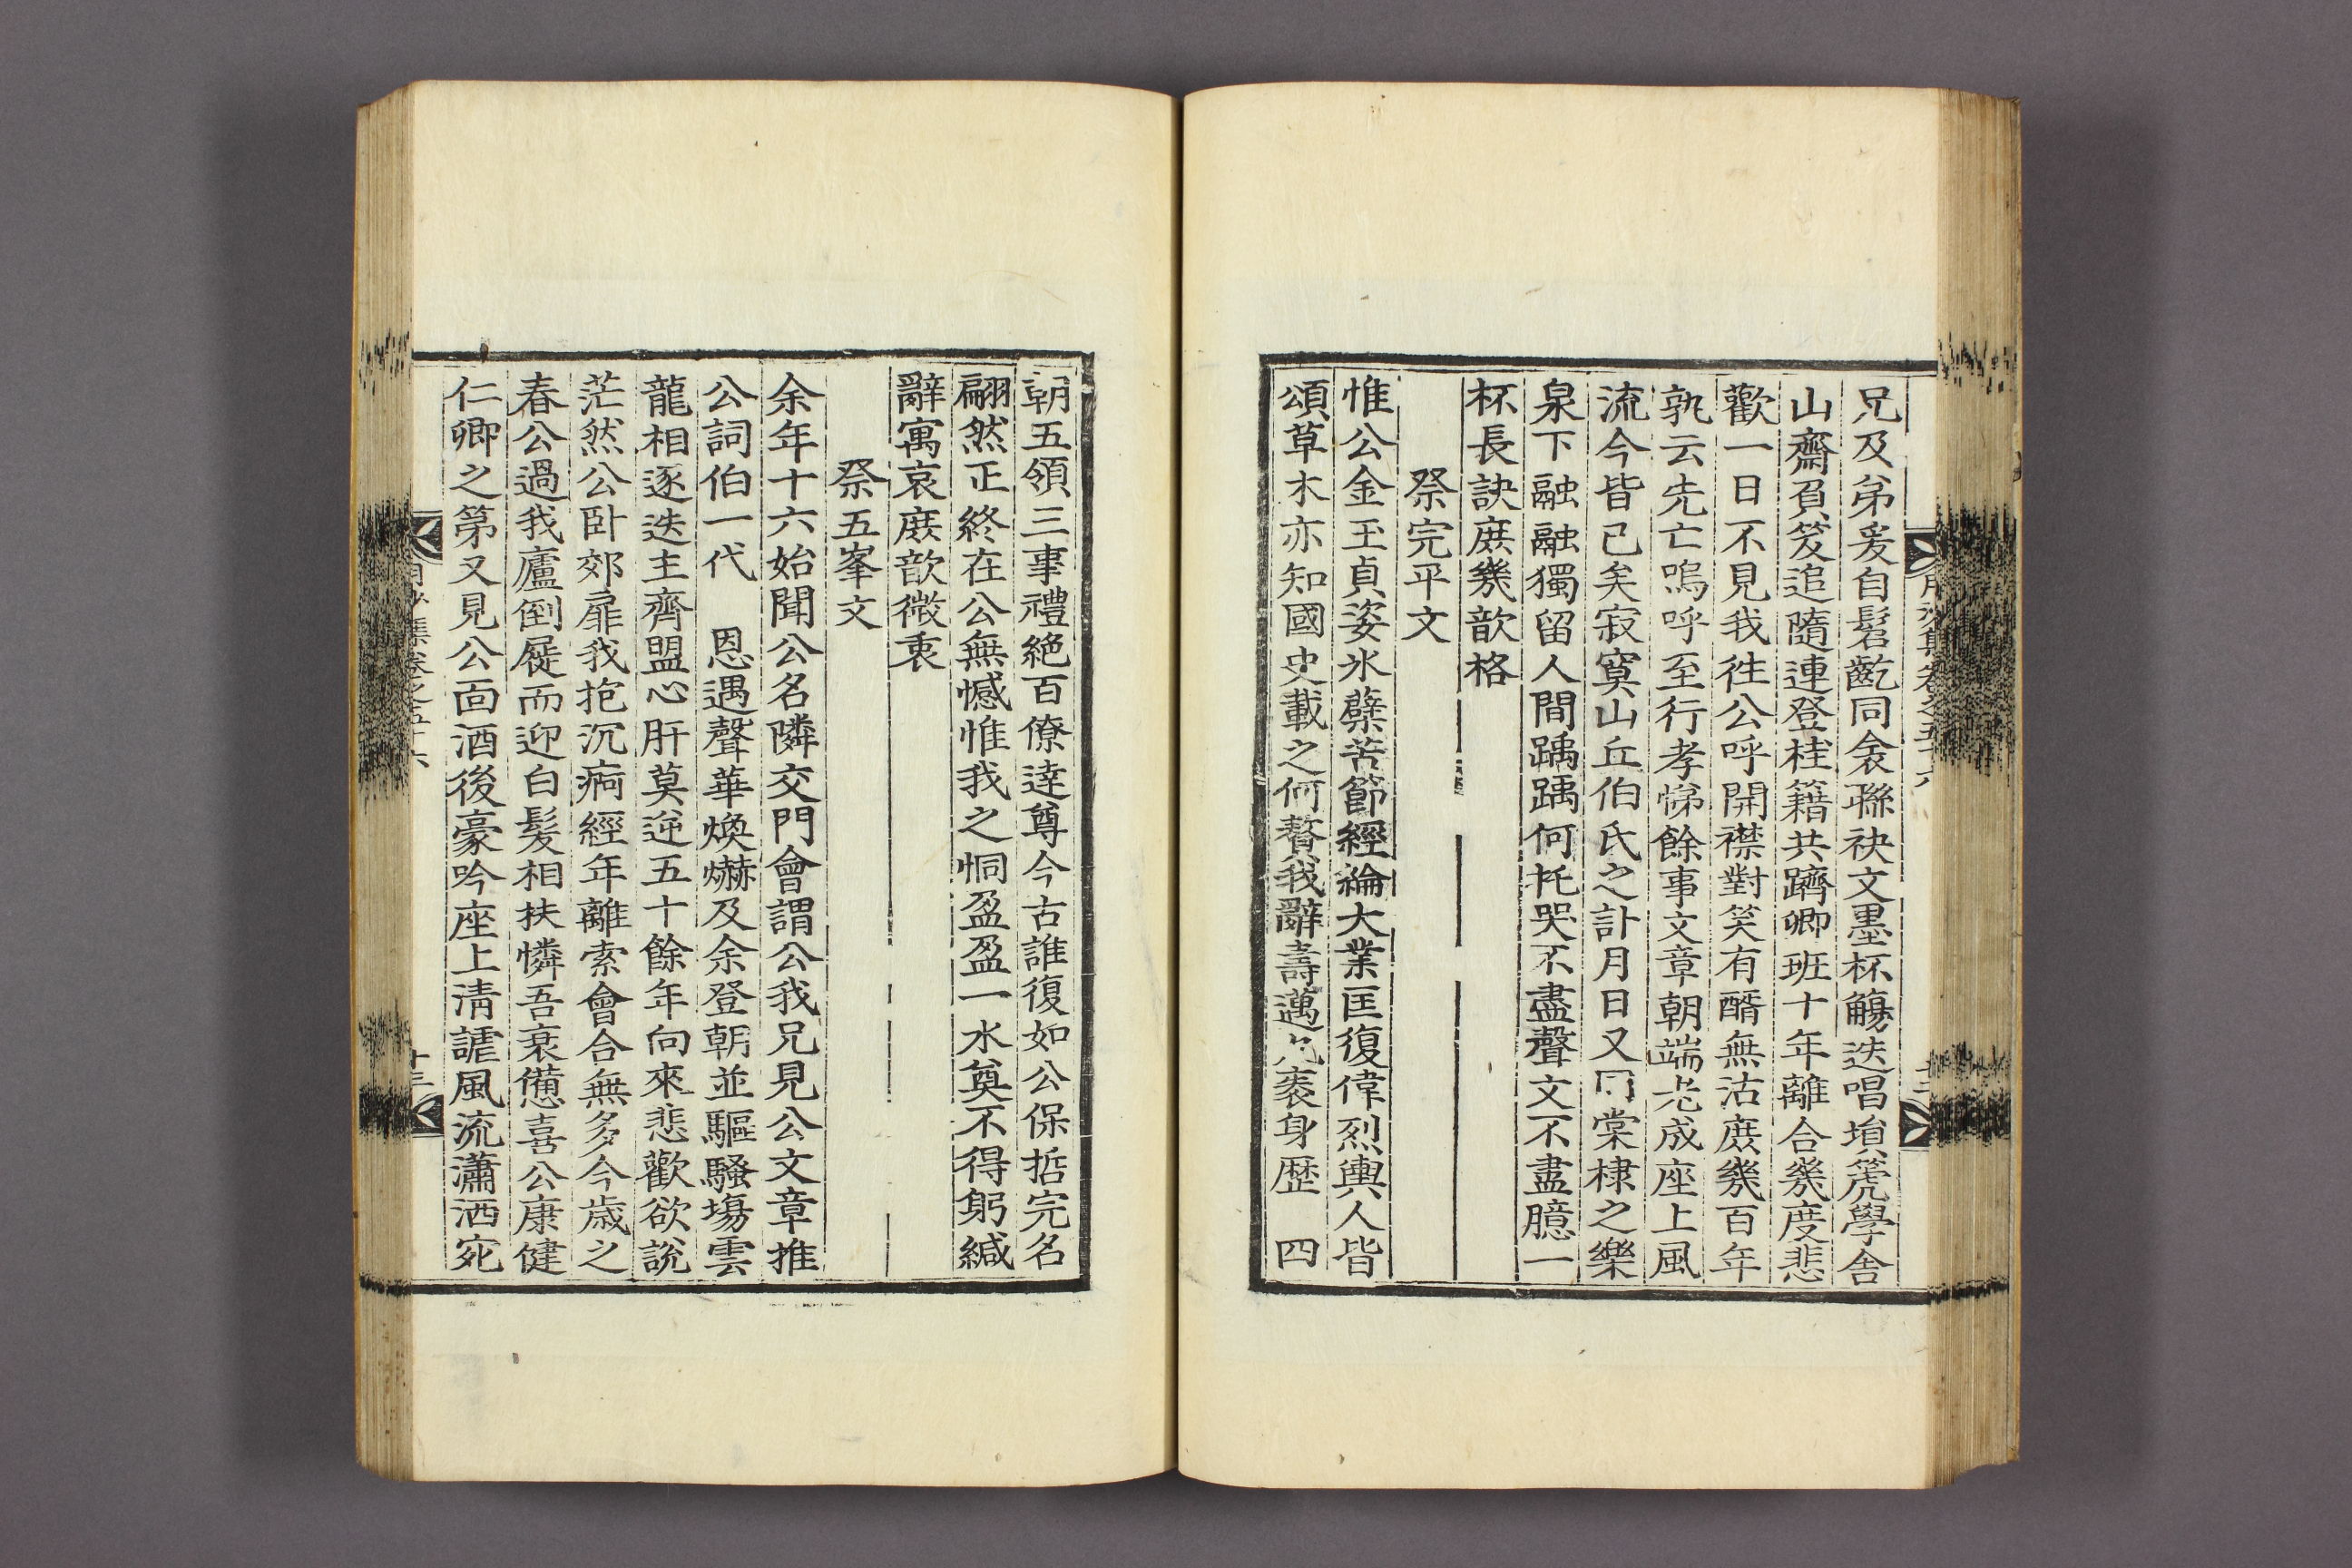 兄及弟爰自髫齔同衾聯袂文墨杯觴迭唱塤篪學舍
山齋負笈追隨連登桂籍共躋卿班十年離合幾度悲
歡一日不見我徃公呼開襟對笑有醑無沽庶幾百年
孰云先亡嗚呼至行孝悌餘事文章朝端老成座上風
流今皆已矣寂寞山丘伯氏之訃月日又同棠棣之樂
泉下融融獨留人間踽踽何托哭不盡聲文不盡臆一
杯長訣庶幾歆格
祭完平文
惟公金玉貞姿氷蘗苦節經綸大業匡復偉烈輿人皆
頌草木亦知國史載之何贅我辭壽邁九袠身歷 四
朝五領三事禮絶百僚逹尊今古誰復如公保哲完名
翩然正終在公無憾惟我之恫盈盈一水奠不得躬緘
辭寓哀庶歆微衷
祭五峯文
余年十六始聞公名隣交門會謂公我兄見公文章推
公詞伯一代 恩遇聲華煥爀及余登朝並驅騷場雲
龍相逐迭主齊盟心肝莫逆五十餘年向來悲歡欲說
茫然公卧郊扉我抱沉痾經年離索會合無多今歲之
春公過我廬倒屣而迎白髮相扶憐吾衰憊喜公康健
仁卿之第又見公面酒後豪吟座上淸謔風流瀟洒宛